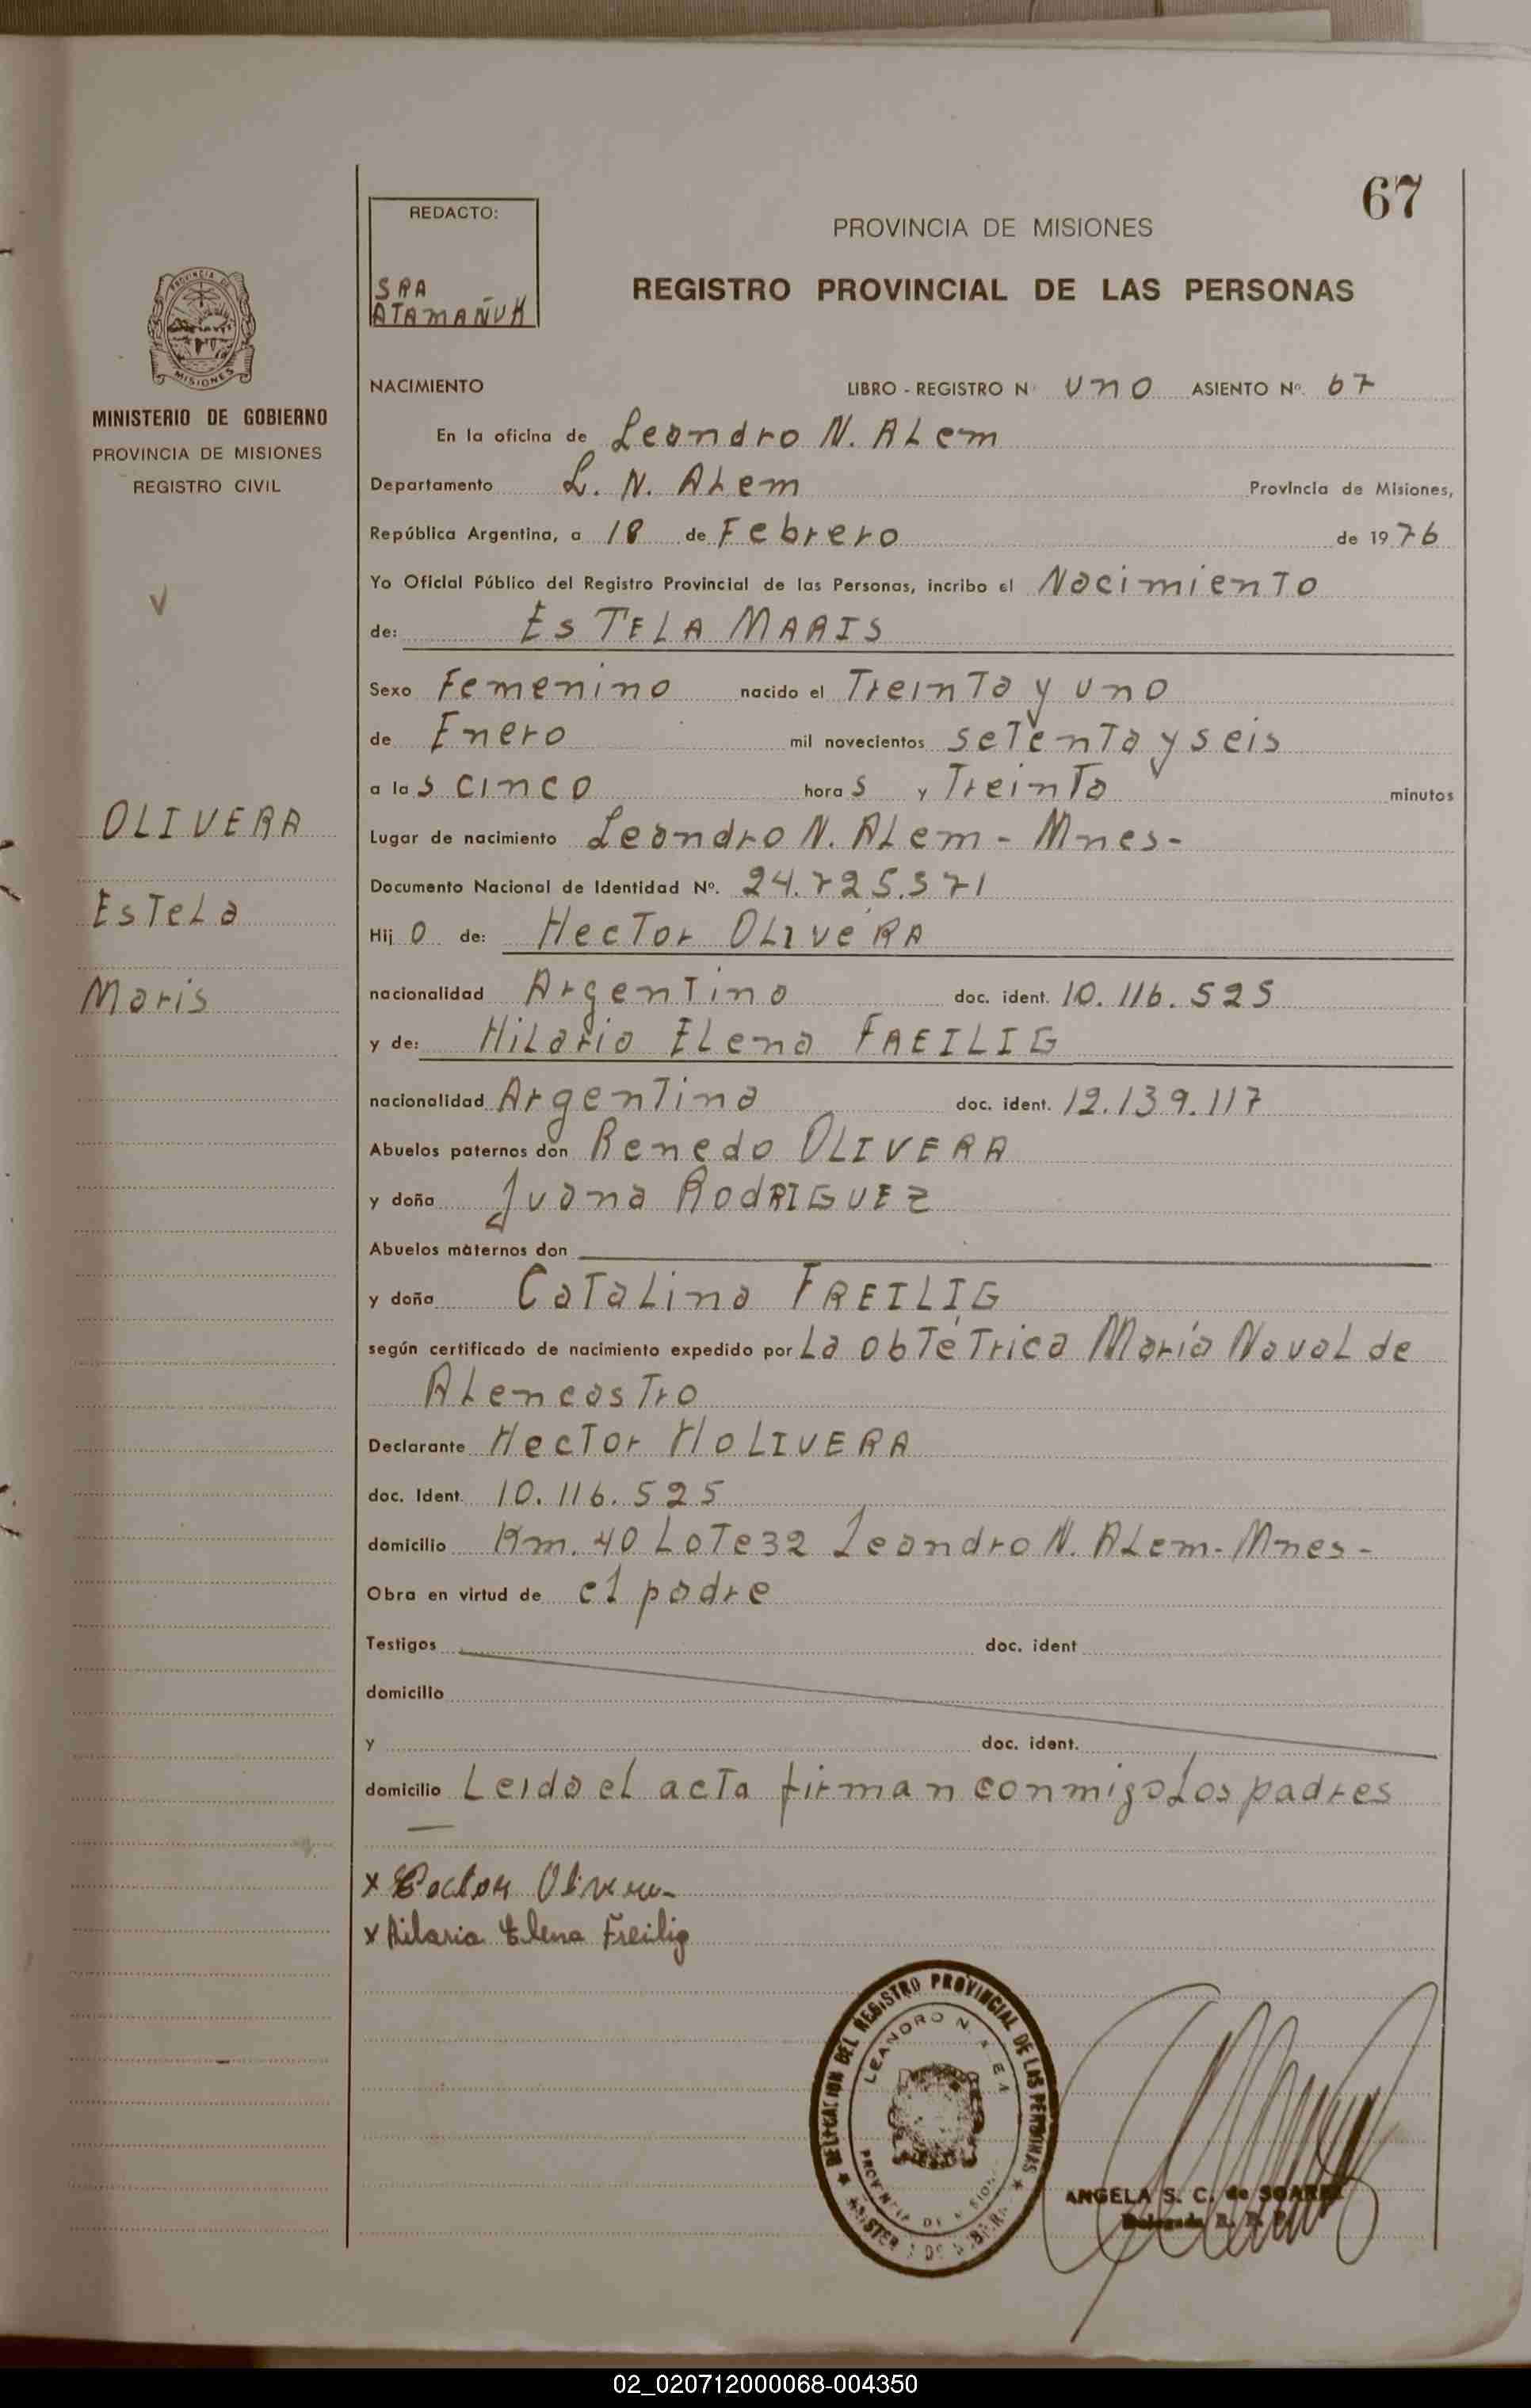 67
REDACTO:
SRA
ATAMAÑUK
PROVINCIA DE MISIONES
REGISTRO PROVINCIAL DE LAS PERSONAS
PROVINCIA DE
MISIONES
MINISTERIO DE GOBIERNO
PROVINCIA DE MISIONES
REGISTRO CIVIL
V
OLIVERA
EsTeLa
Maris
NACIMIENTO LIBRO - REGISTRO N° uno ASIENTO Nº. 67
En la oficina de Leandro N. ALem
Departamento L. N. ALem Provincia de Misiones,
República Argentina, a 18 de Febrero de 1976
Yo Oficial Público del Registro Provincial de las Personas, incribo el NacimienTo
de: EsTELA MARIS
Sexo Femenino nacido el TreinTa y uno
de Enero mil novecientos seTenTa y seis
a las cinco horas y TreinTa minutos
Lugar de nacimiento Leandro N. ALem - Mnes-
Documento Nacional de Identidad Nº. 24.725.371
Hij o de: HecTor OLiveRA
nacionalidad ArgenTino doc. ident. 10.116.525
y de: HiLaria ELena FREILIG
nacionalidad ArgenTina doc. ident. 12.139.117
Abuelos paternos don Renedo OLIVERA
y doña Juana RodRIGUEZ
Abuelos maternos don
y doña CaTaLina FREILIG
según certificado de nacimiento expedido por La obTéTrica María NavaL de
ALencasTro
Declarante HecTor HoLIVERA
doc. Ident. 10.116.525
domicilio Km. 40 LoTe 32 Leandro N. ALem- Mnes-
Obra en virtud de el padre
Testigos doc. ident
domicilio
y doc. ident.
domicilio Leido el acTa firman conmigo Los padres
x Ector Olivera
x Hilaria Elena Freilig
DELEGACION DEL REGISTRO PROVINCIAL DE LAS PERSONAS
LEANDRO N. ALEM
PROVINCIA DE MISIONES
ANGELA S. C. de SOAREZ
Delegada R. P. P.
02_020712000068-004350